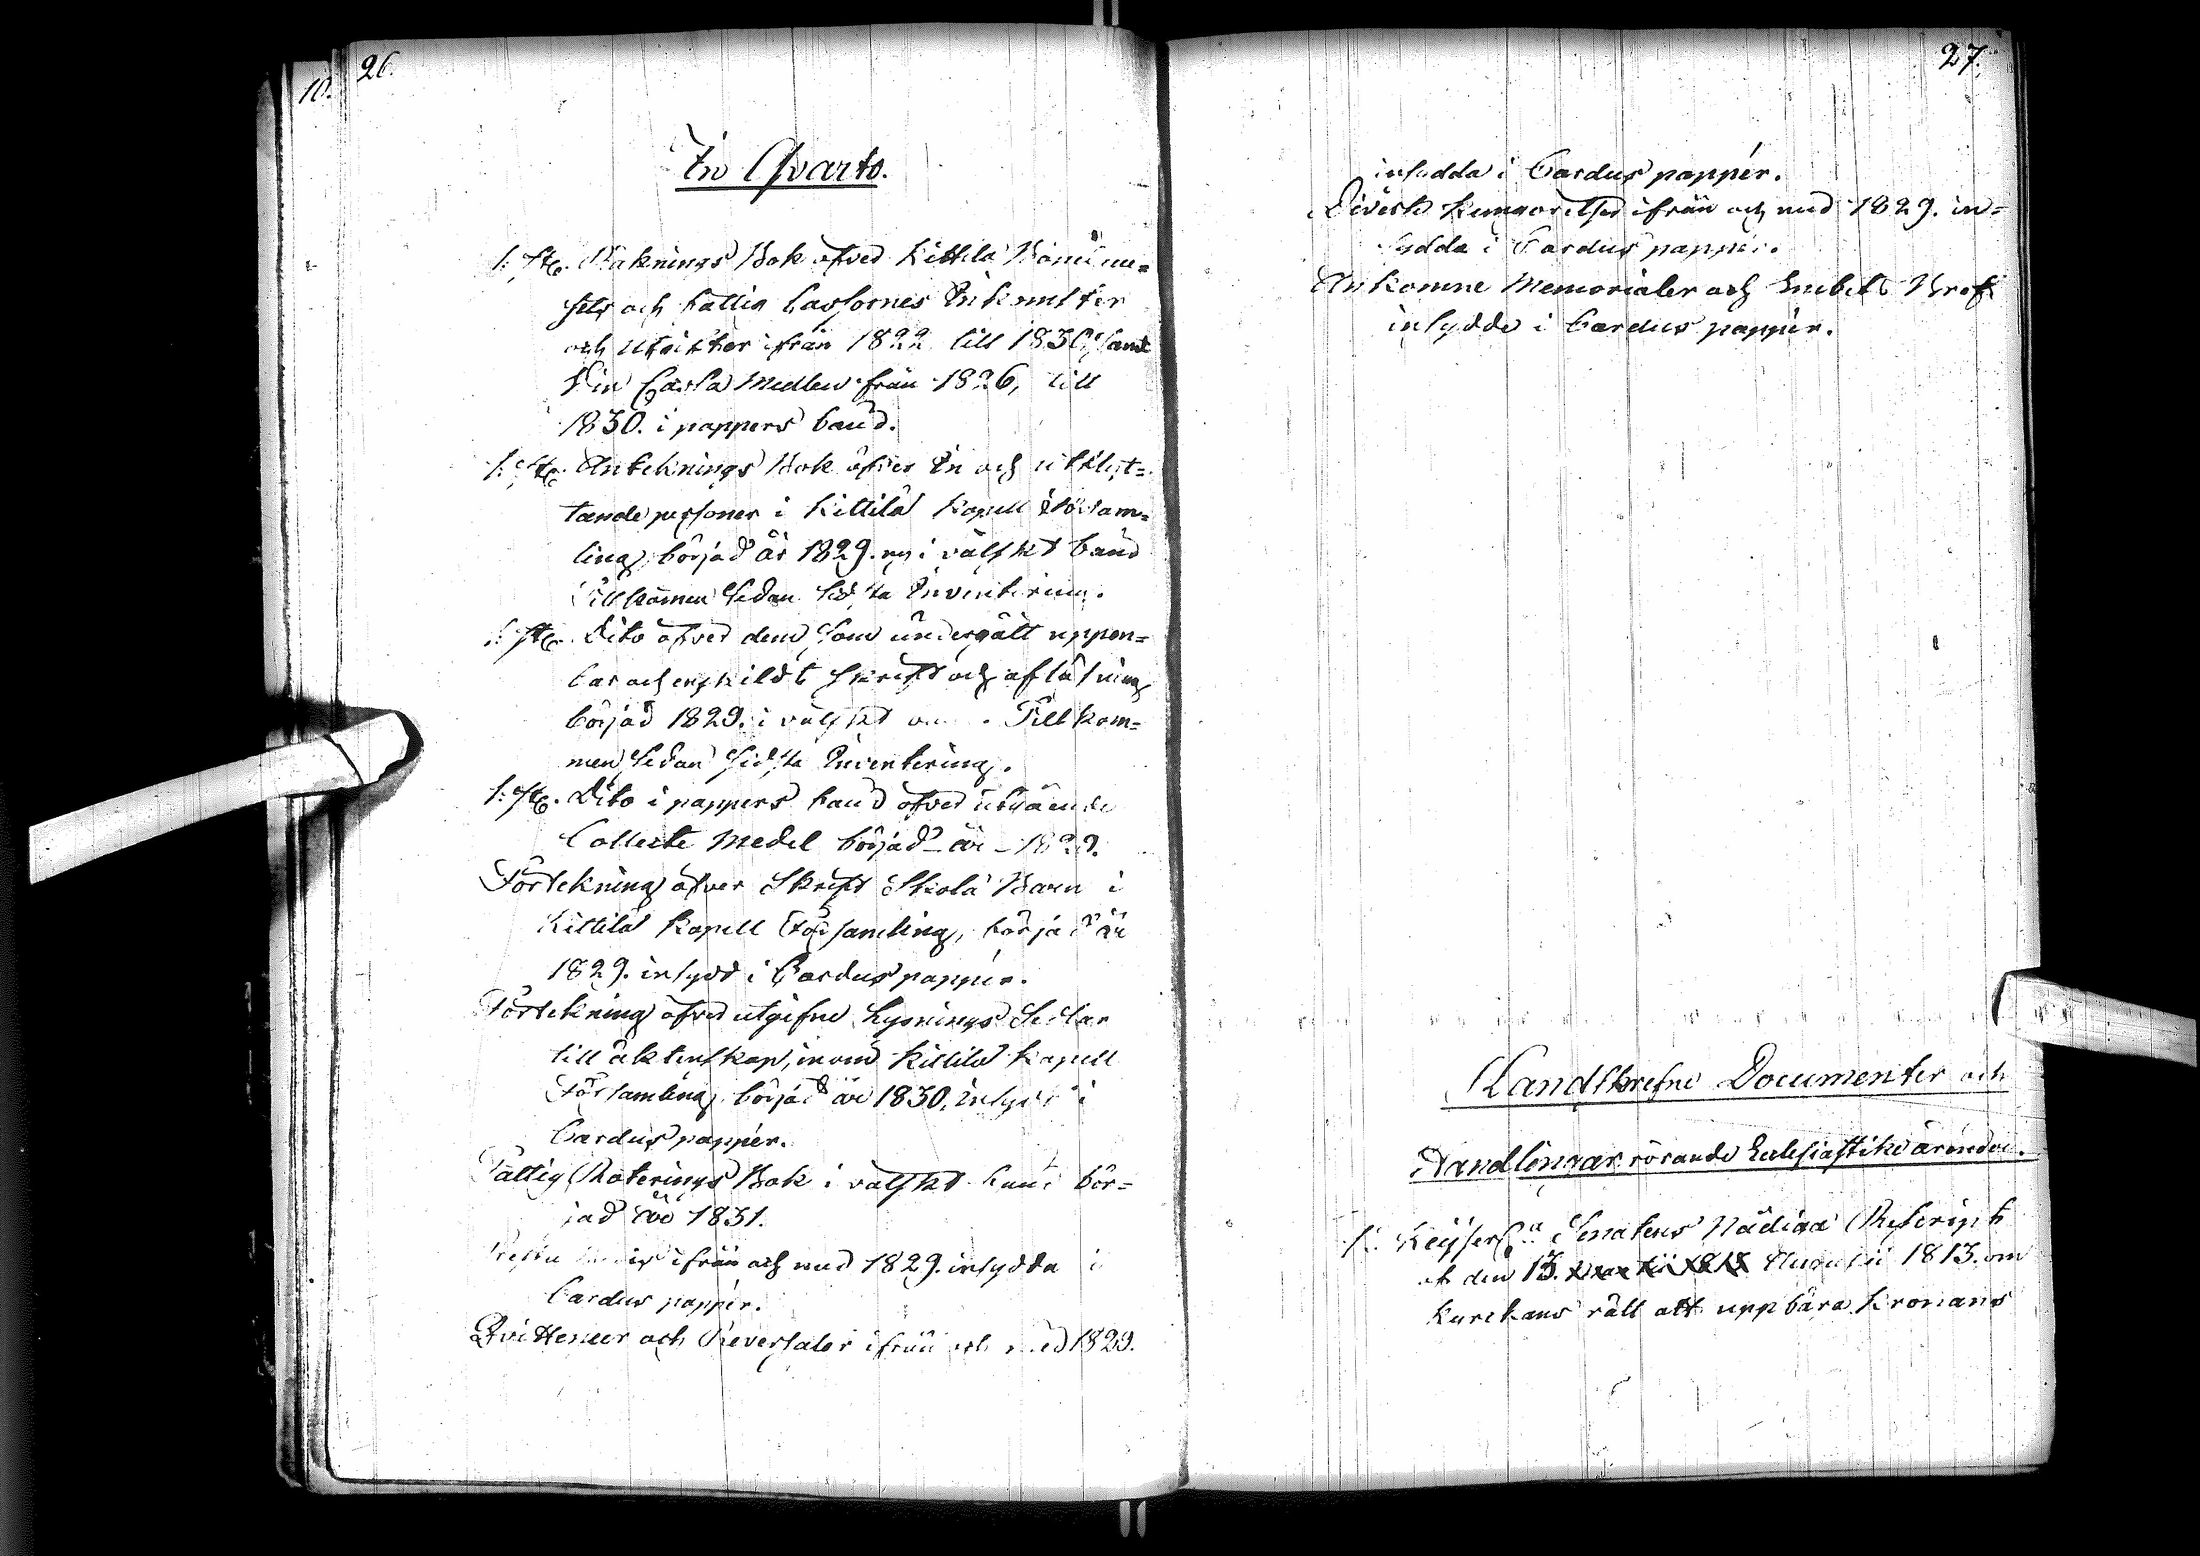 10.
26.
In Qvarto.
1. st. Räknings Bok öfver Kittilä Bönehu=
sets och Fattig Cassornes Inkomster
och Utgifter ifrån 1822 till 1830, samt
Vin Cassa Medlen från 1826, till
1830. i pappers band.
1. st. Anteknings Bok öfver In och utflyt=
tande personer i Kittilä Kapell Församl=
ling, börjad år 1829. ny i välskt band
Tillkommen sedan sidsta Inventering.
1. st. Dito öfver dem som undergått uppen=
bar och enskildt skrift och aflösning
börjad 1829. i välskt Tillkom=
men sedan sidsta Inventering.
1. st. Dito i pappers band öfver utgående
Collecte Medel börjad år 1829.
Förtekning öfver Skrift Skola Barn i
Kittilä Kapell Församling, börjad år
1829. insydd i Cardus pappér.
Förtekning öfver utgifne Lysnings Sedlar
till äktenskap, inom Kittilä Kapell
Församling, börjad år 1830, insydd i
Cardus pappér.
Fattig Roterings Bok i välskt band bör=
jad år 1831.
ifrån och med 1829. insydda i
Cardus pappér.
Qvittencer och Reversaler ifrån och med 1829.
27.
insydda i Cardus pappér.
Diverse kungörelser ifrån och med 1829. in=
sydda i Cardus pappér.
Ankomne Memorialer och Embets Bref
insydde i Cardus pappér.
Handskrefne Documenter och
Handlingar rörande Ecclesiastike ärender.
1. Keijserl.a Senatens Nådiga Rescript
af den 13. Augusti 1813. om
Kyrckans rätt att uppbära Kronans